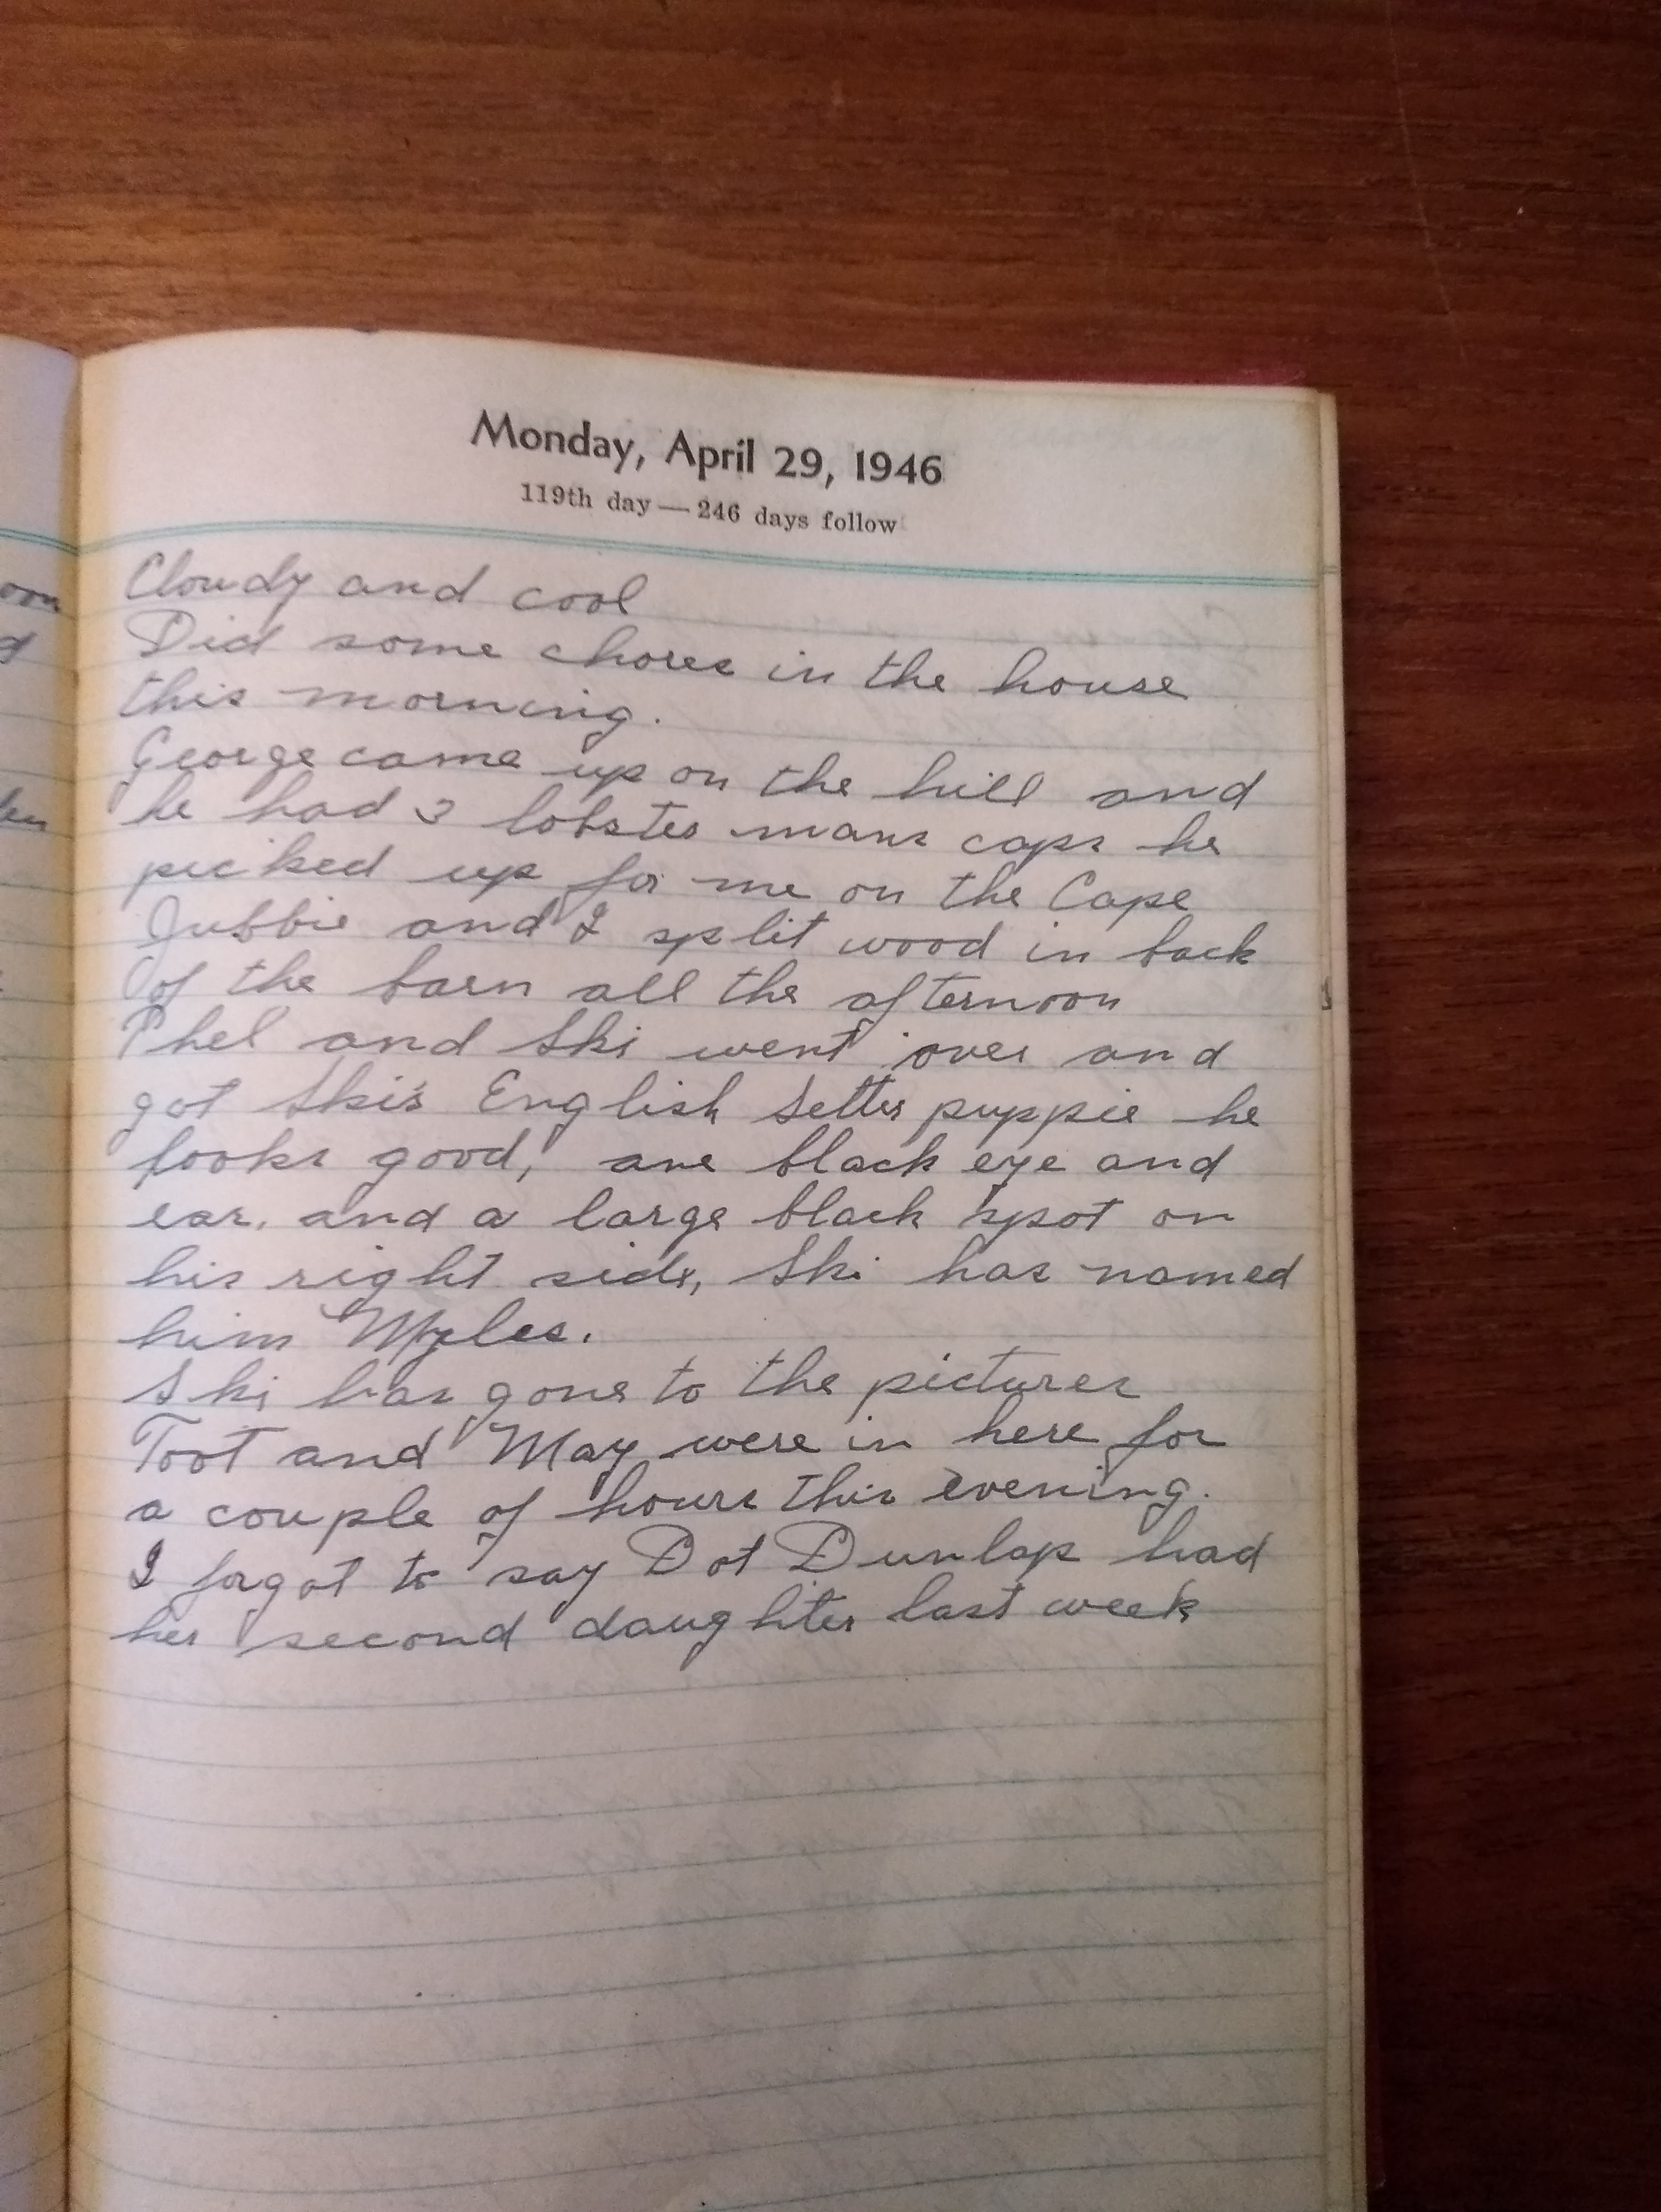 Monday, April 29, 1946
119th day — 246 days follow
Cloudy and cool
Did some chores in the house
this morning.
George came up on the hill and
he had 3 lobster mans caps he
picked up for me on the Cape
Jubbie and I split wood in back
of the barn all the afternoon
Phel and Ski went over and
got Ski's English Setter puppie he
looks good, one black eye and
ear, and a large black spot on
his right side, Ski has named
him Myles.
Ski has gone to the pictures
Toot and May were in here for
a couple of hours this evening.
I forgot to say Dot Dunlap had
her second daughter last week